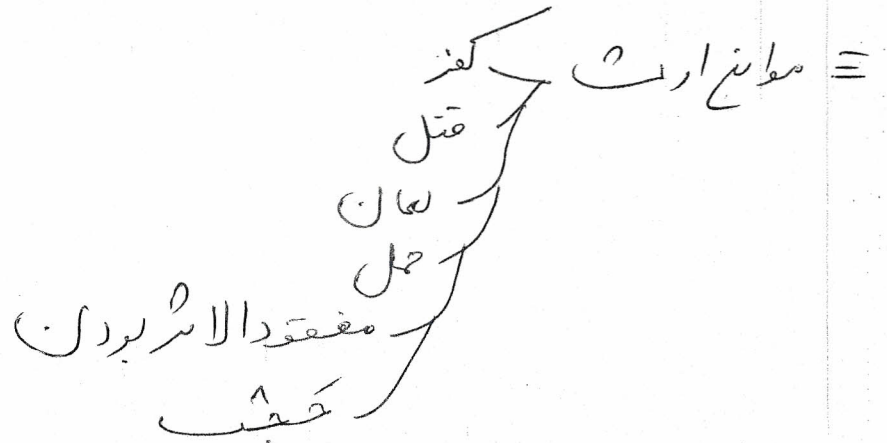 ≡ موانع ارث
کفر
قتل
لعان
حمل
مفقودالاثر بودن
حجب